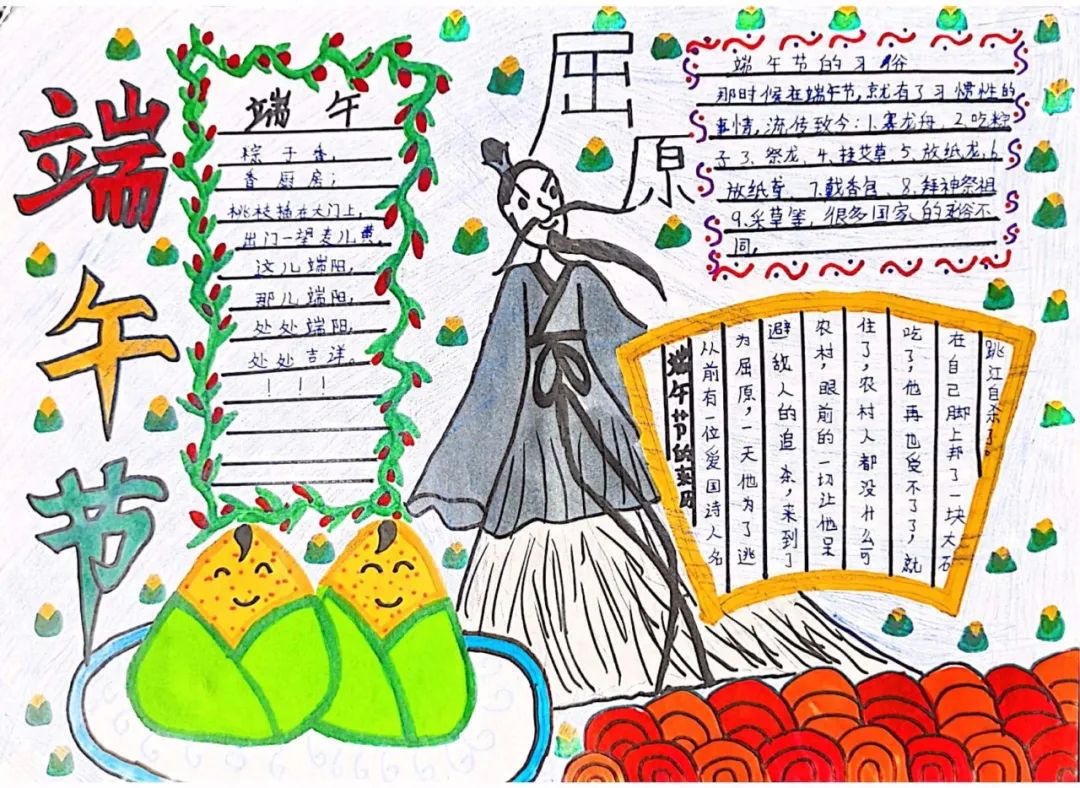 端午节
端午
粽子香,
香厨房;
桃枝插在大门上,
出门一望麦儿黄,
这儿端阳,
那儿端阳,
处处端阳,
处处吉洋。
! ! !
屈原
端午节的习俗
那时候在端午节,就有了习惯性的
事情,流传致今:1.赛龙舟、2.吃粽
子 3、祭龙、4、挂艾草、5、放纸龙、6、
放纸鸢、7.戴香包、8.拜神祭祖
9.采草等,很多国家的习俗不
同,
端午节的来历
从前有一位爱国诗人名
为屈原,一天他为了逃
避敌人的追杀,来到了
农村,眼前的一切让他呆
住了,农村人都没什么可
吃了,他再也受不了了,就
在自己脚上绑了一块大石
跳江自杀了。